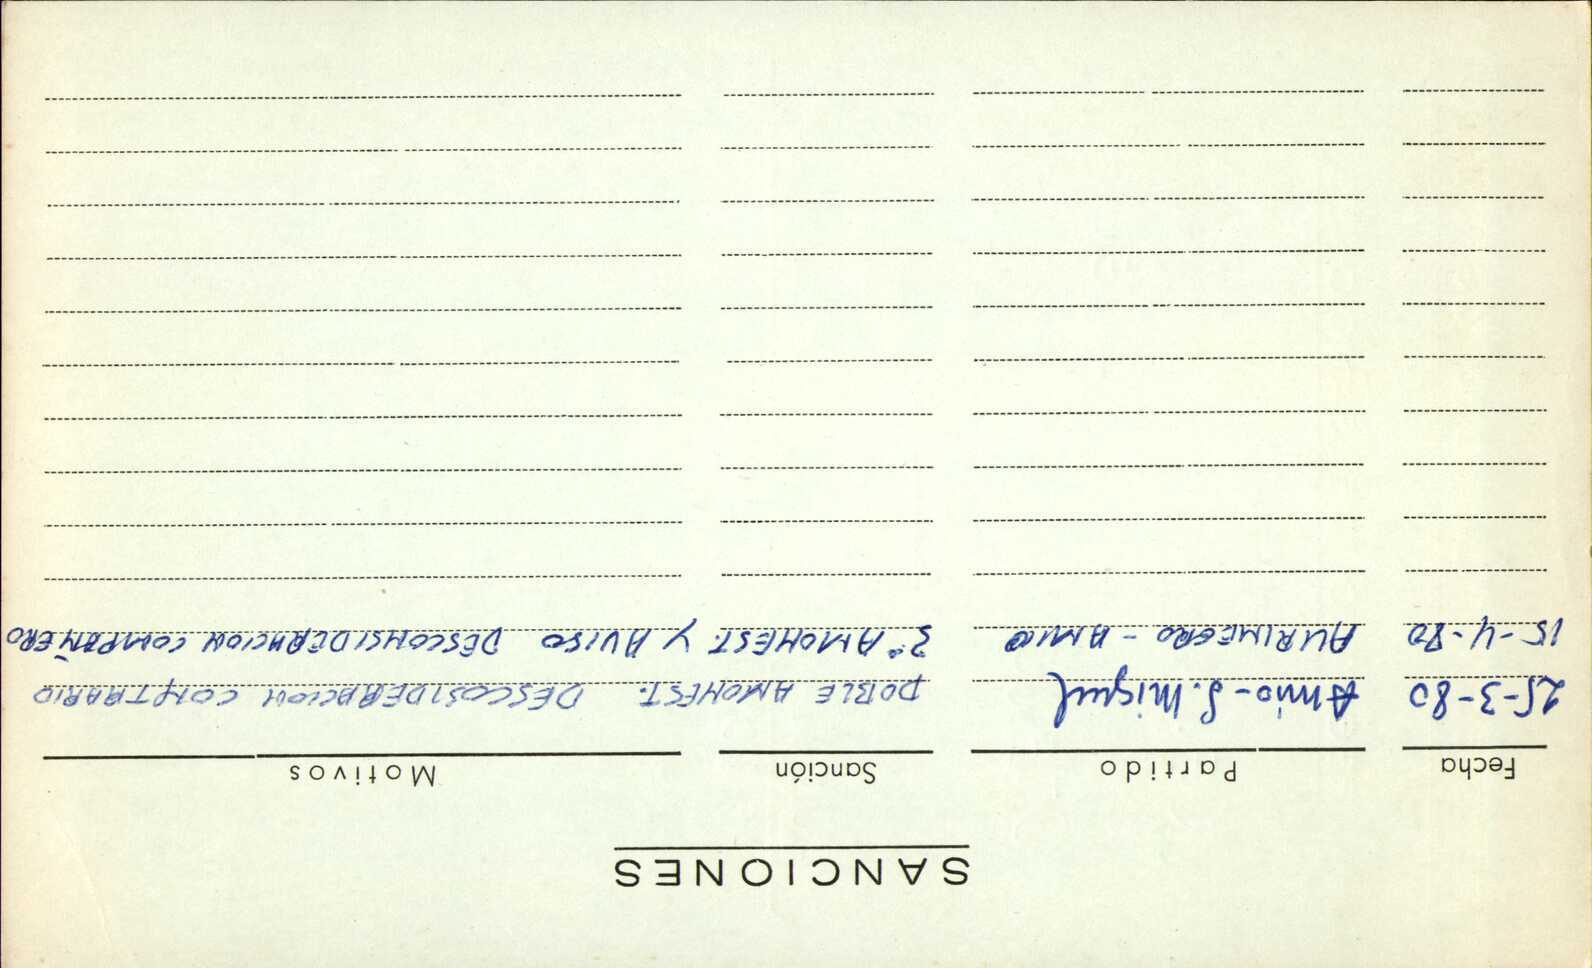 SANCIONES
Fecha Partido Sanción Motivos
25-3-80 Amio-S. Miguel DOBLE AMONEST. DESCOSIDERACION CONTRARIO
15-4-80 AURINEGRO - AMIO 3ª AMONEST. Y AVISO DESCONSIDERACION COMPAÑERO